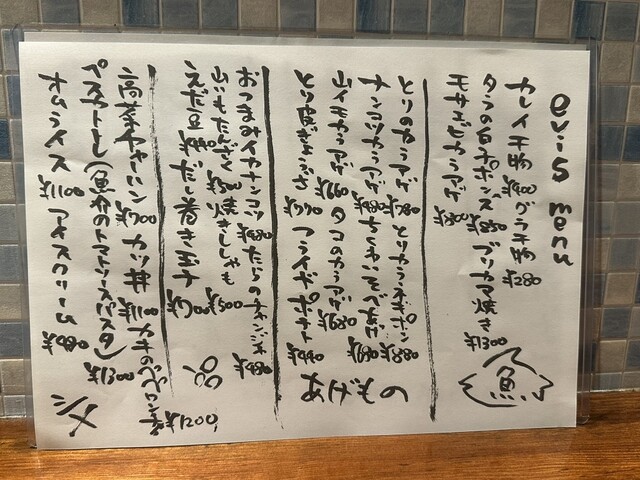 evis menu
カレイ干物 ¥400 グラ干物 ¥280
タラの白子ポンズ ¥850 ブリカマ焼き ¥1300
モサエビカラアゲ ¥800
魚
とりのカラアゲ ¥780 とりカラネギポン ¥880
ナンコツカラアゲ ¥480 ちくわいそべあげ ¥680
山イモカラアゲ ¥660 タコのカラアゲ ¥680
とり皮ぎょうざ ¥770 フライドポテト ¥490
あげもの
おつまみイカナンコツ ¥480 たらのチャンジャ ¥480
山いもたんざく ¥500 焼きししゃも ¥500
えだ豆 ¥440 だし巻き玉子 ¥700
高菜チャーハン ¥700 カツ丼 ¥1100 カキの ¥1200
ペスカトーレ(魚介のトマトソースパスタ) ¥1300
オムライス ¥1100 アイスクリーム ¥480
シメ